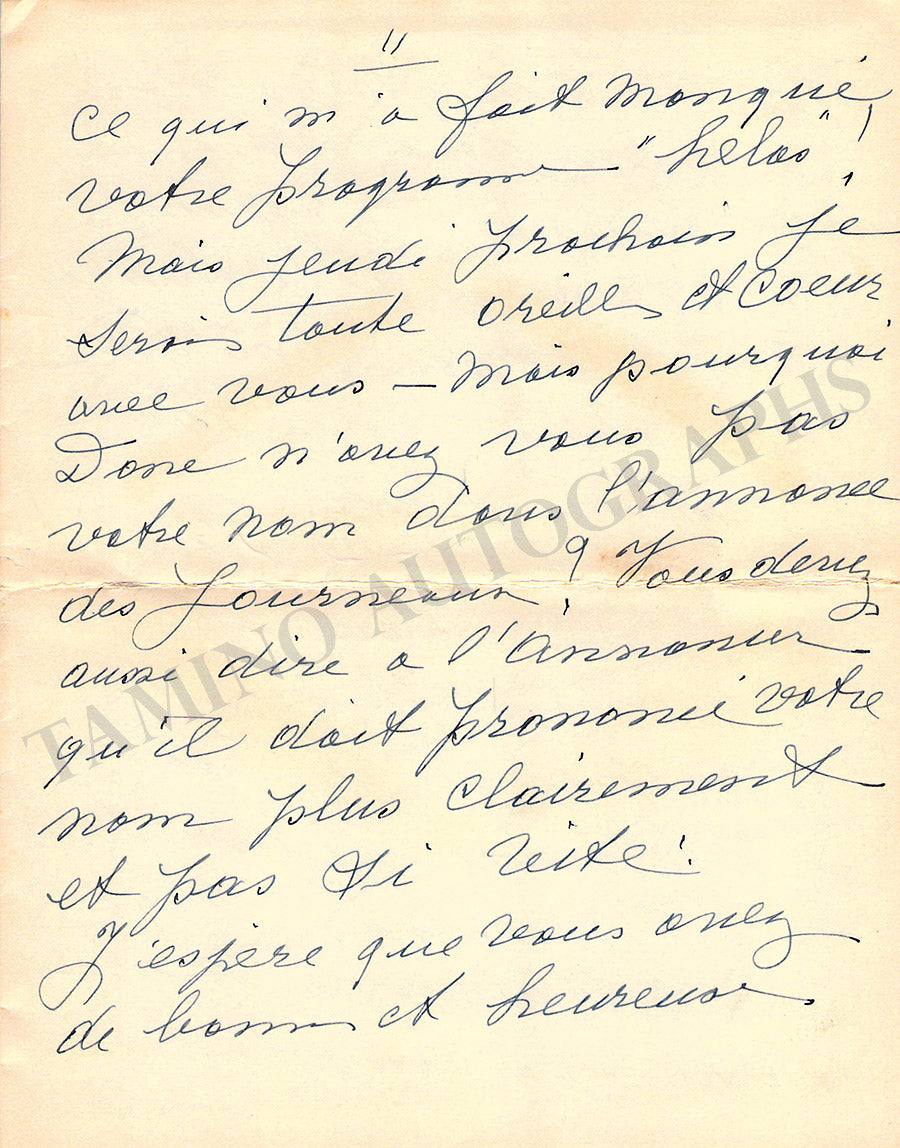 11
ce qui m'a fait manqué,
votre programme "helas"!
Mais jeudi prochain je
serais toute oreilles et coeur
avec vous — Mais pourquoi
Donc n'avez vous pas
votre nom dans l'annonce
des Journeaux? Vous devez
aussi dire a l'Annoncer
qu'il doit prononcé votre
nom plus clairement
et pas si vite!
J'espère que vous avez
de bonnes et heureuses
TAMINO AUTOGRAPHS